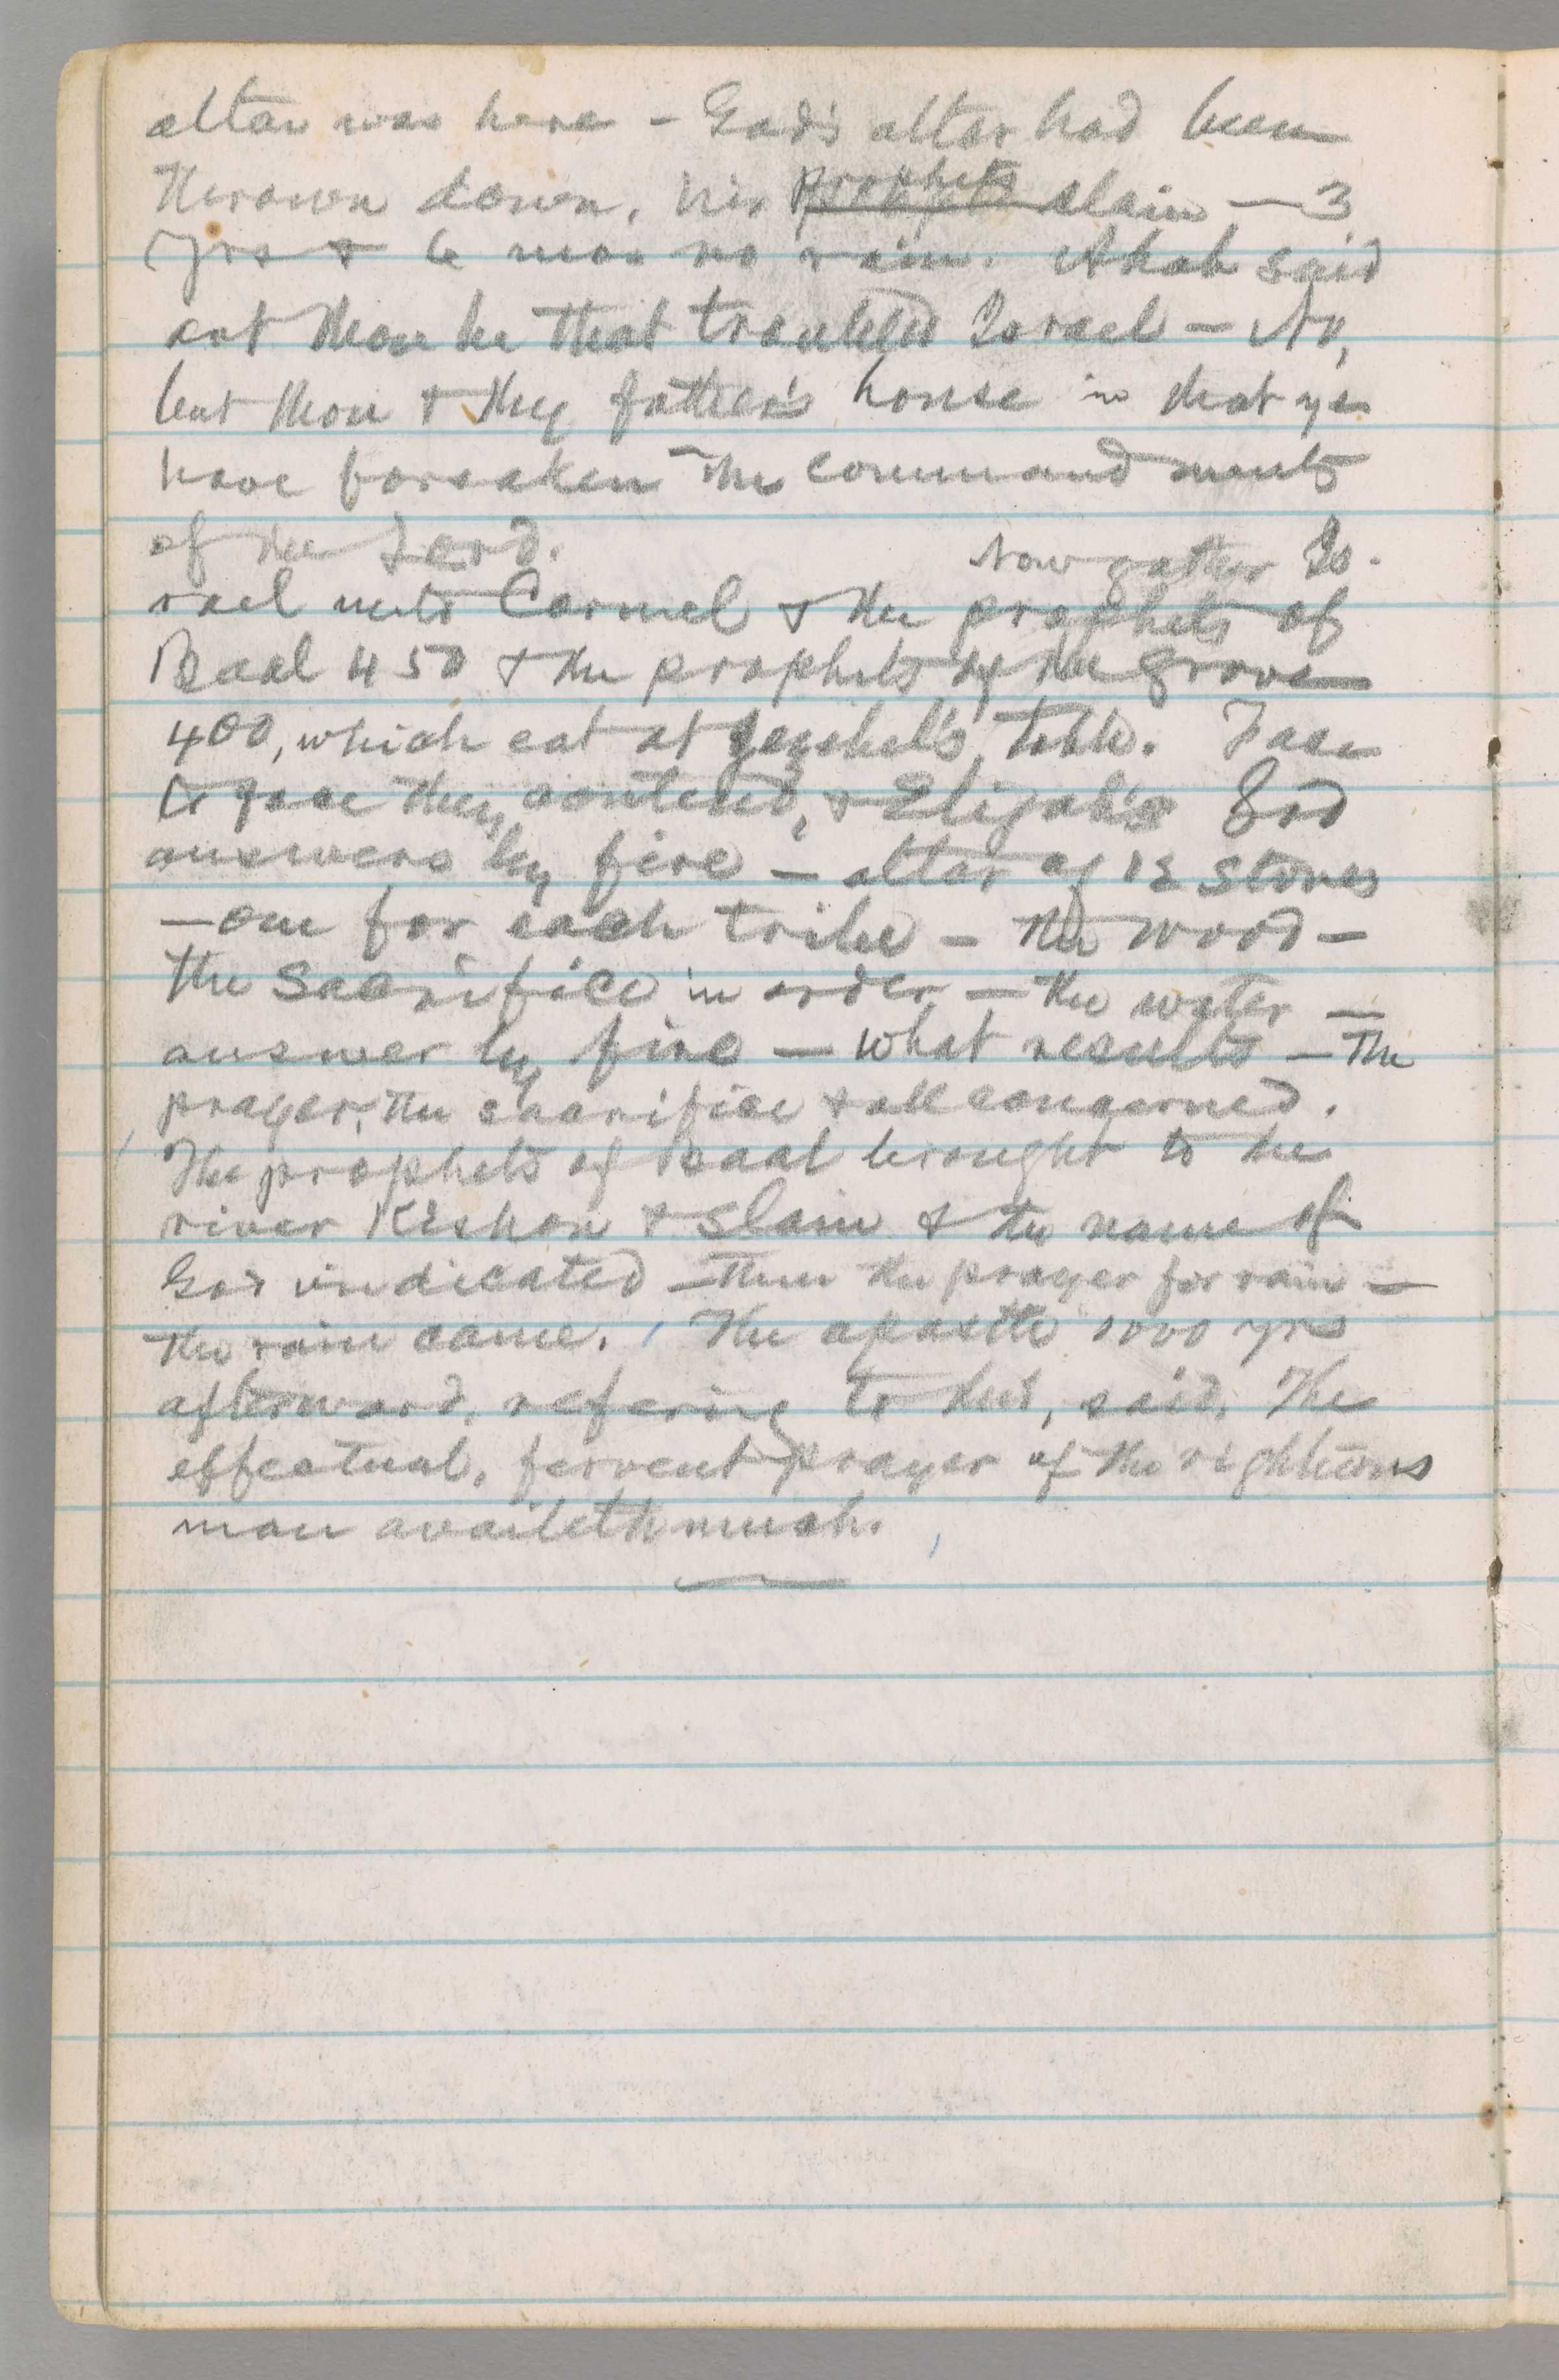 altar was here - God's altar had been
thrown down, his prophets slain - 3
yrs & 6 mos no rain. Ahab said
art thou he that troubled Israel - No,
but thou & thy father's house in that ye
have forsaken the commandments
of the Lord. Now gather Is-
rael unto Carmel & the prophets of
Baal 450 & the prophets of the grove
400, which eat at Jezebel's table. Face
to face they contend, & Elijah's God
answers by fire - altar of 12 stones
- one for each tribe - the wood -
the sacrifice in order - the water -
answer by fire - what results - the
prayer, the sacrifice & all concerned.
The prophets of Baal brought to the
river Kishon & slain & the name of
God vindicated - Then the prayer for rain -
the rain came. The apostle 1000 yrs
afterward, refering to this, said, The
effectual, fervent prayer of the righteous
man availeth much.